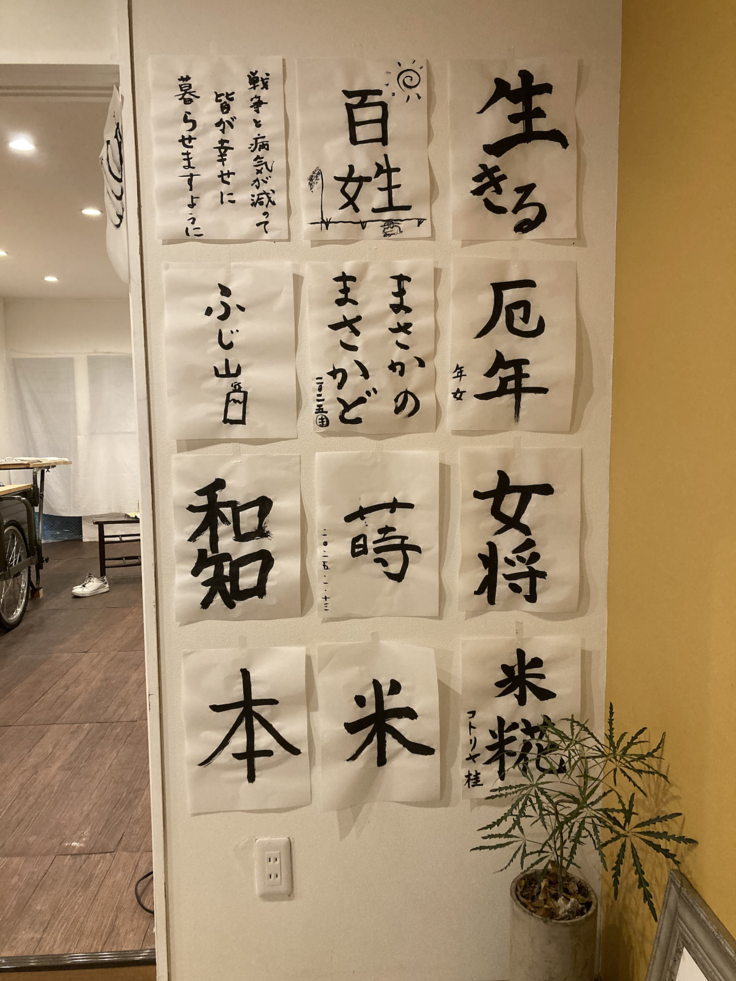 生きる
百姓
戦争と病気が減って
皆が幸せに
暮らせますように
厄年
年女
まさかの
まさかど
ふじ山
女将
蒔
二〇二五.一.十三
和
知
米
本
米糀
コトリヤ 桂